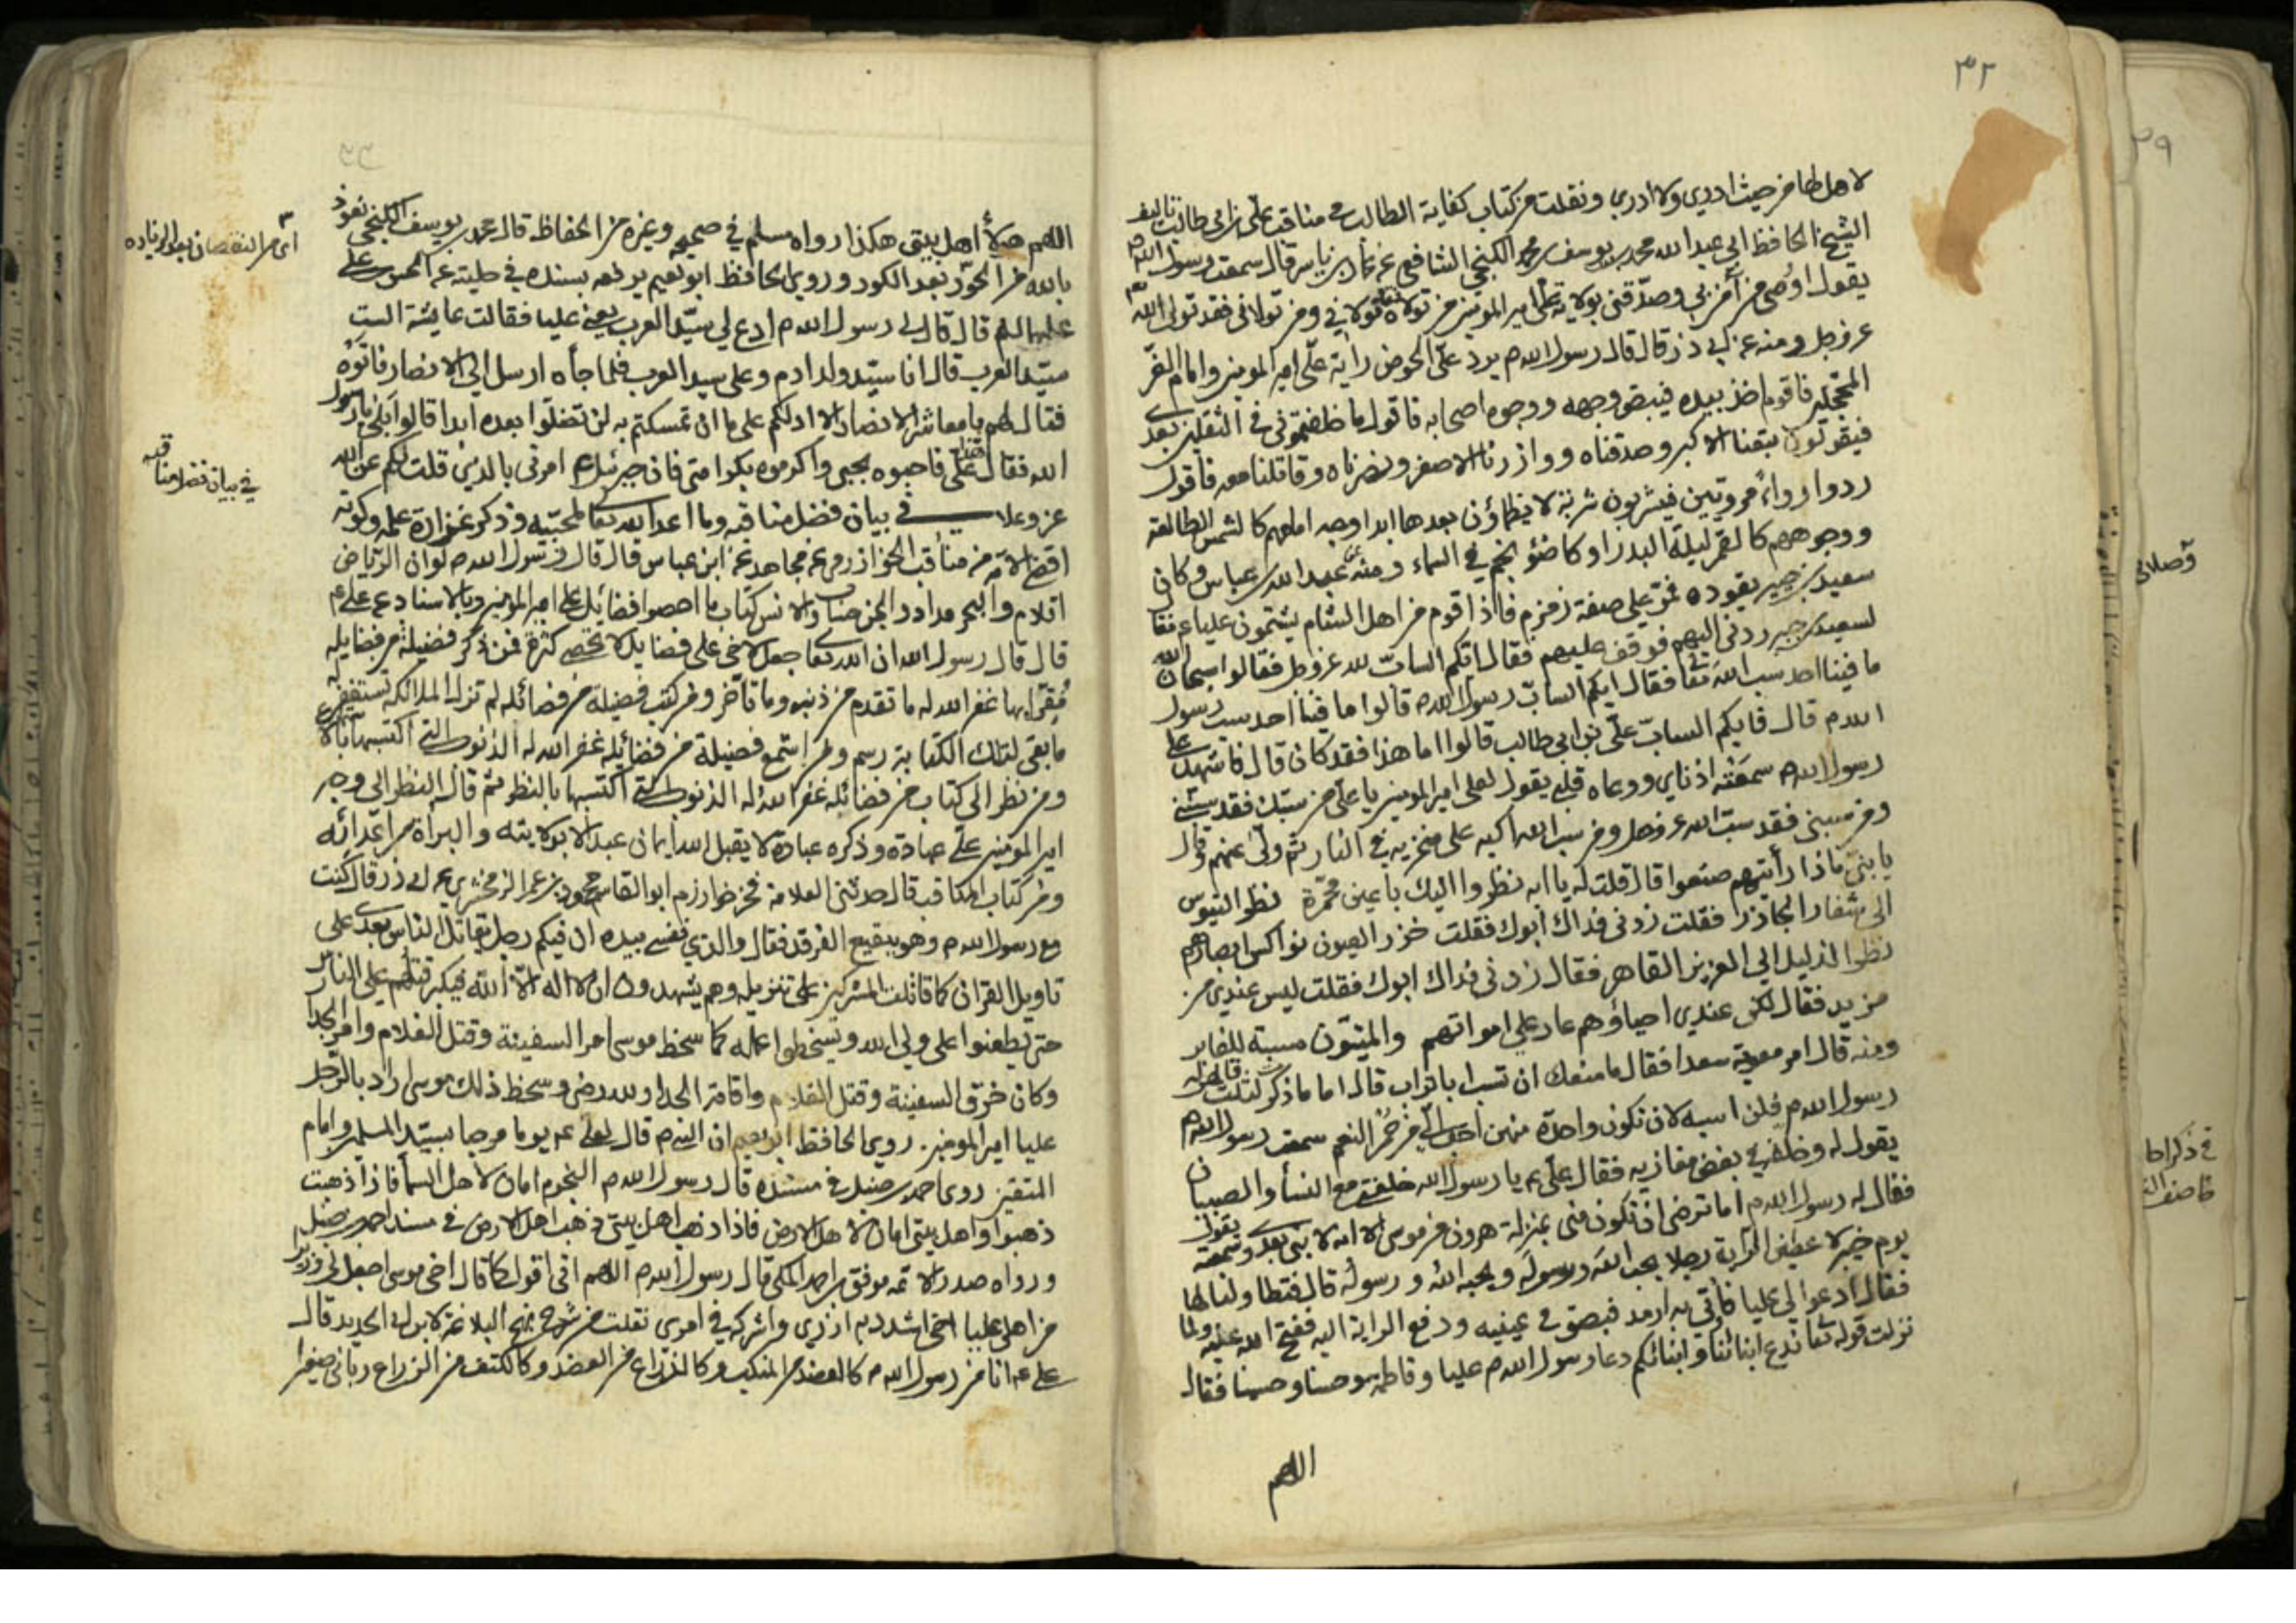 ٣٢
لا هل طا من حيث ادري ولا ادري ونقلت من كتاب كفاية الطالب في مناقب علي بن ابي طالب تاليف
الشيخ الحافظ ابي عبد الله محمد بن يوسف بن محمد الكنجي الشافعي عن عمار بن ياسر قال سمعت رسول الله م
يقول اوصى من آمن بي وصدّقني بولاية علي امير المومنين من تولاه فقد تولاني ومن تولاني فقد تولى الله
عز وجل ومنه عن ابي ذر قال قال رسول الله م يرد علي الحوض راية علي امير المومنين وامام الغرّ
المحجلين فاقوم اخذ بيده فيبيض وجهه ووجوه اصحابه فاقول ما خلفتموني في الثقلين بعدي
فيقولون تبعنا الاكبر وصدقناه ووازرنا الاصغر ونصرناه وقاتلنا معه فاقول
ردوا رواءً مرويين فيشربون شربة لا يظماؤن بعدها ابدا وجه امامهم كالشمس الطالعة
ووجوههم كالقمر ليلة البدر او كاضوٰ نجم في السماء ومنه عن عبد الله بن عباس وكان
سعيد بن جبير يقوده فمر على صفة زمزم فاذا قوم من اهل الشام يشتمون عليا ع فقا
لسعيد بن جبير ردني اليهم فوقف عليهم فقال ايكم السابّ لله عز وجل فقالوا سبحان الله
ما فينا احد سب الله تعا فقال ايكم السابّ رسول الله م قالوا ما فينا احد سب رسول
الله م قال فايكم السابّ علّي بن ابي طالب قالوا اما هذا فقد كان قال فاشهد على
رسول الله م سمعَتْه اذناي ووعاه قلبي يقول لعلي امير المومنين يا علي من سبّك فقد سبّني
ومن سبني فقد سبّ الله عز وجل ومن سب الله اكبه على منخريه في النار ثم ولّى عنهم وقال
يا بنيّ ماذا رأيتهم صنعوا قال قلت له يا ابه نظروا اليك باعين محمّرة نظر التيوس
الى شفار الجازر فقلت زدني فداك ابوك فقلت خزر العيون نواكس ابصارهم
نظر الذليل الى العزيز القاهر فقال زدني فداك ابوك فقلت ليس عندي من
مزيد فقال لكن عندي احياؤهم عار على امواتهم والميّتون مسبة للغابر
ومنه قال امر معوية سعدا فقال ما منعك ان تسب ابا تراب قال اما ما ذكرت ثلث قالهن له
رسول الله م فلن اسبه لان تكون واحدة منهن احبّ اليّ من حُمْر النعم سمعت رسول الله م
يقول له وخلفه في بعض مغازيه فقال علّي ع يا رسول الله خلفتني مع النسأ والصبيان
فقال له رسول الله م اما ترضى ان تكون مني بمنزلة هرون من موسى الا انه لا نبي بعدي وسمعته يقول
يوم خيبر لا عطين الراية رجلا يحب اللهَ ورسولَه ويحبه اللهُ ورسولُه قال فتطاولنا لها
فقال ادعوا لي عليا فأتى به ارمد فبصق في عينيه ودفع الراية اليه ففتح الله عليه ولما
نزلت قوله تعا ندع ابنائنا وابنائكم دعا رسول الله م عليا وفاطمة وحسنا وحسينا فقال
اللهم
اللهم هؤلأ اهل بيتي هكذا رواه مسلم في صحيحه وغيره من الحفاظ قال محمد بن يوسف الكنجي نعوذ
بالله من الحَوْر بعد الكور وروى الحافظ ابو نعيم يرفعه بسنده في حليته عن الحسن بن علي
عليهما السلم قال قال لي رسول الله م ادع لي سيّد العرب يعني عليا فقالت عايشة الست
سيّد العرب قال انا سيّد ولد ادم وعلي سيد العرب فلما جأه ارسل الى الانصار فاتوه
فقال لهم يا معاشر الانصار الا ادلكم على ما ان تمسكتم به لن تضلّوا بعده ابدا قالوا بَلٰى يا رسول
الله فقال هذا علي فاحبوه بحبي واكرموه بكرامتي فان جبرئيل ع امرني بالذي قلت لكم عن الله
عز وعلا في بيان فضل مناقبه وما اعد الله تعا لمحبّيه وذكر غزارة علمه وكونه
اقضى الامّة من مناقب الخوارزمي عن مجاهد عن ابن عباس قال قال رسول الله م لو ان الرّياض
اقلام والبحر مداد والجن حسّاب والانس كتاب ما احصوا فضايل علي امير المومنين وبالاسناد عن علي ع
قال قال رسول الله ان الله تعا جعل لاخي علي فضايلا لا تحصى كثرة فمن ذكر فضيلة من فضايله
مُقِرّا بها غفر الله له ما تقدم من ذنبه وما تأخر ومن كتب فضيلة من فضائله لم تزل الملائكه تستغفر له
ما بقي لتلك الكتابة رسم ومن استمع فضيلة من فضائيله غفر الله له الذنوب التي اكتسبها بالاستماع
ومن نظر الى كتاب من فضائله غفر الله له الذنوب التي اكتسبها بالنظر ثم قال النظر الى وجه
امير المومنين علي عبادة وذكره عبادة لا يقبل الله ايمان عبد الا بولايته والبرأة من اعدائه
ومن كتاب المناقب قال حدثني العلامة فخر خوارزم ابو القاسم محمود بن عمر الزمخشري عن ابي ذر قال كنت
مع رسول الله م وهو ببقيع الغرقد فقال والذي نفسي بيده ان فيكم رجل يقاتل الناس بعدي على
تاويل القران كما قاتلت المشركين على تنزيله وهم يشهدون ان لا اله الا الله فيكبر قتلهم على الناس
حتى يطعنوا على ولي الله ويسخطوا عمله كما سخط موسى امر السفينة وقتل الغلام وامر الجدار
وكان خرق السفينة وقتل الغلام واقامة الجدار لله رضى وسخط ذلك موسى اراد بالرّجل
عليا امير المومنين. روى الحافظ ابو نعيم ان النبي م قال لعلي ع يوما مرحبا بسيّد المسلمين وامام
المتقين روى احمد بن حنبل في مسنده قال رسول الله م النجوم امان لاهل السمأ فاذا ذهبت
ذهبوا واهل بيتي امان لاهل الارض فاذا ذهب اهل بيتي ذهب اهل الارض في مسند احمد بن حنبل
ورواه صدر الائمة موفق بن احمد المكي قال رسول الله م اللهم اني اقول كما قال اخي موسى اجعل لي وزيرا
من اهلي عليا اخي اشدد به ازري واشركه في امري نقلت من شرح نهج البلاغة لابن ابي الحديد قال
علي ع انا من رسول الله م كالعضد من المنكب وكالذراع من العضد وكالكتف من الذراع رباني صغيرا
اى من النقصان بعد الزياده
في بيان فضل مناقبه